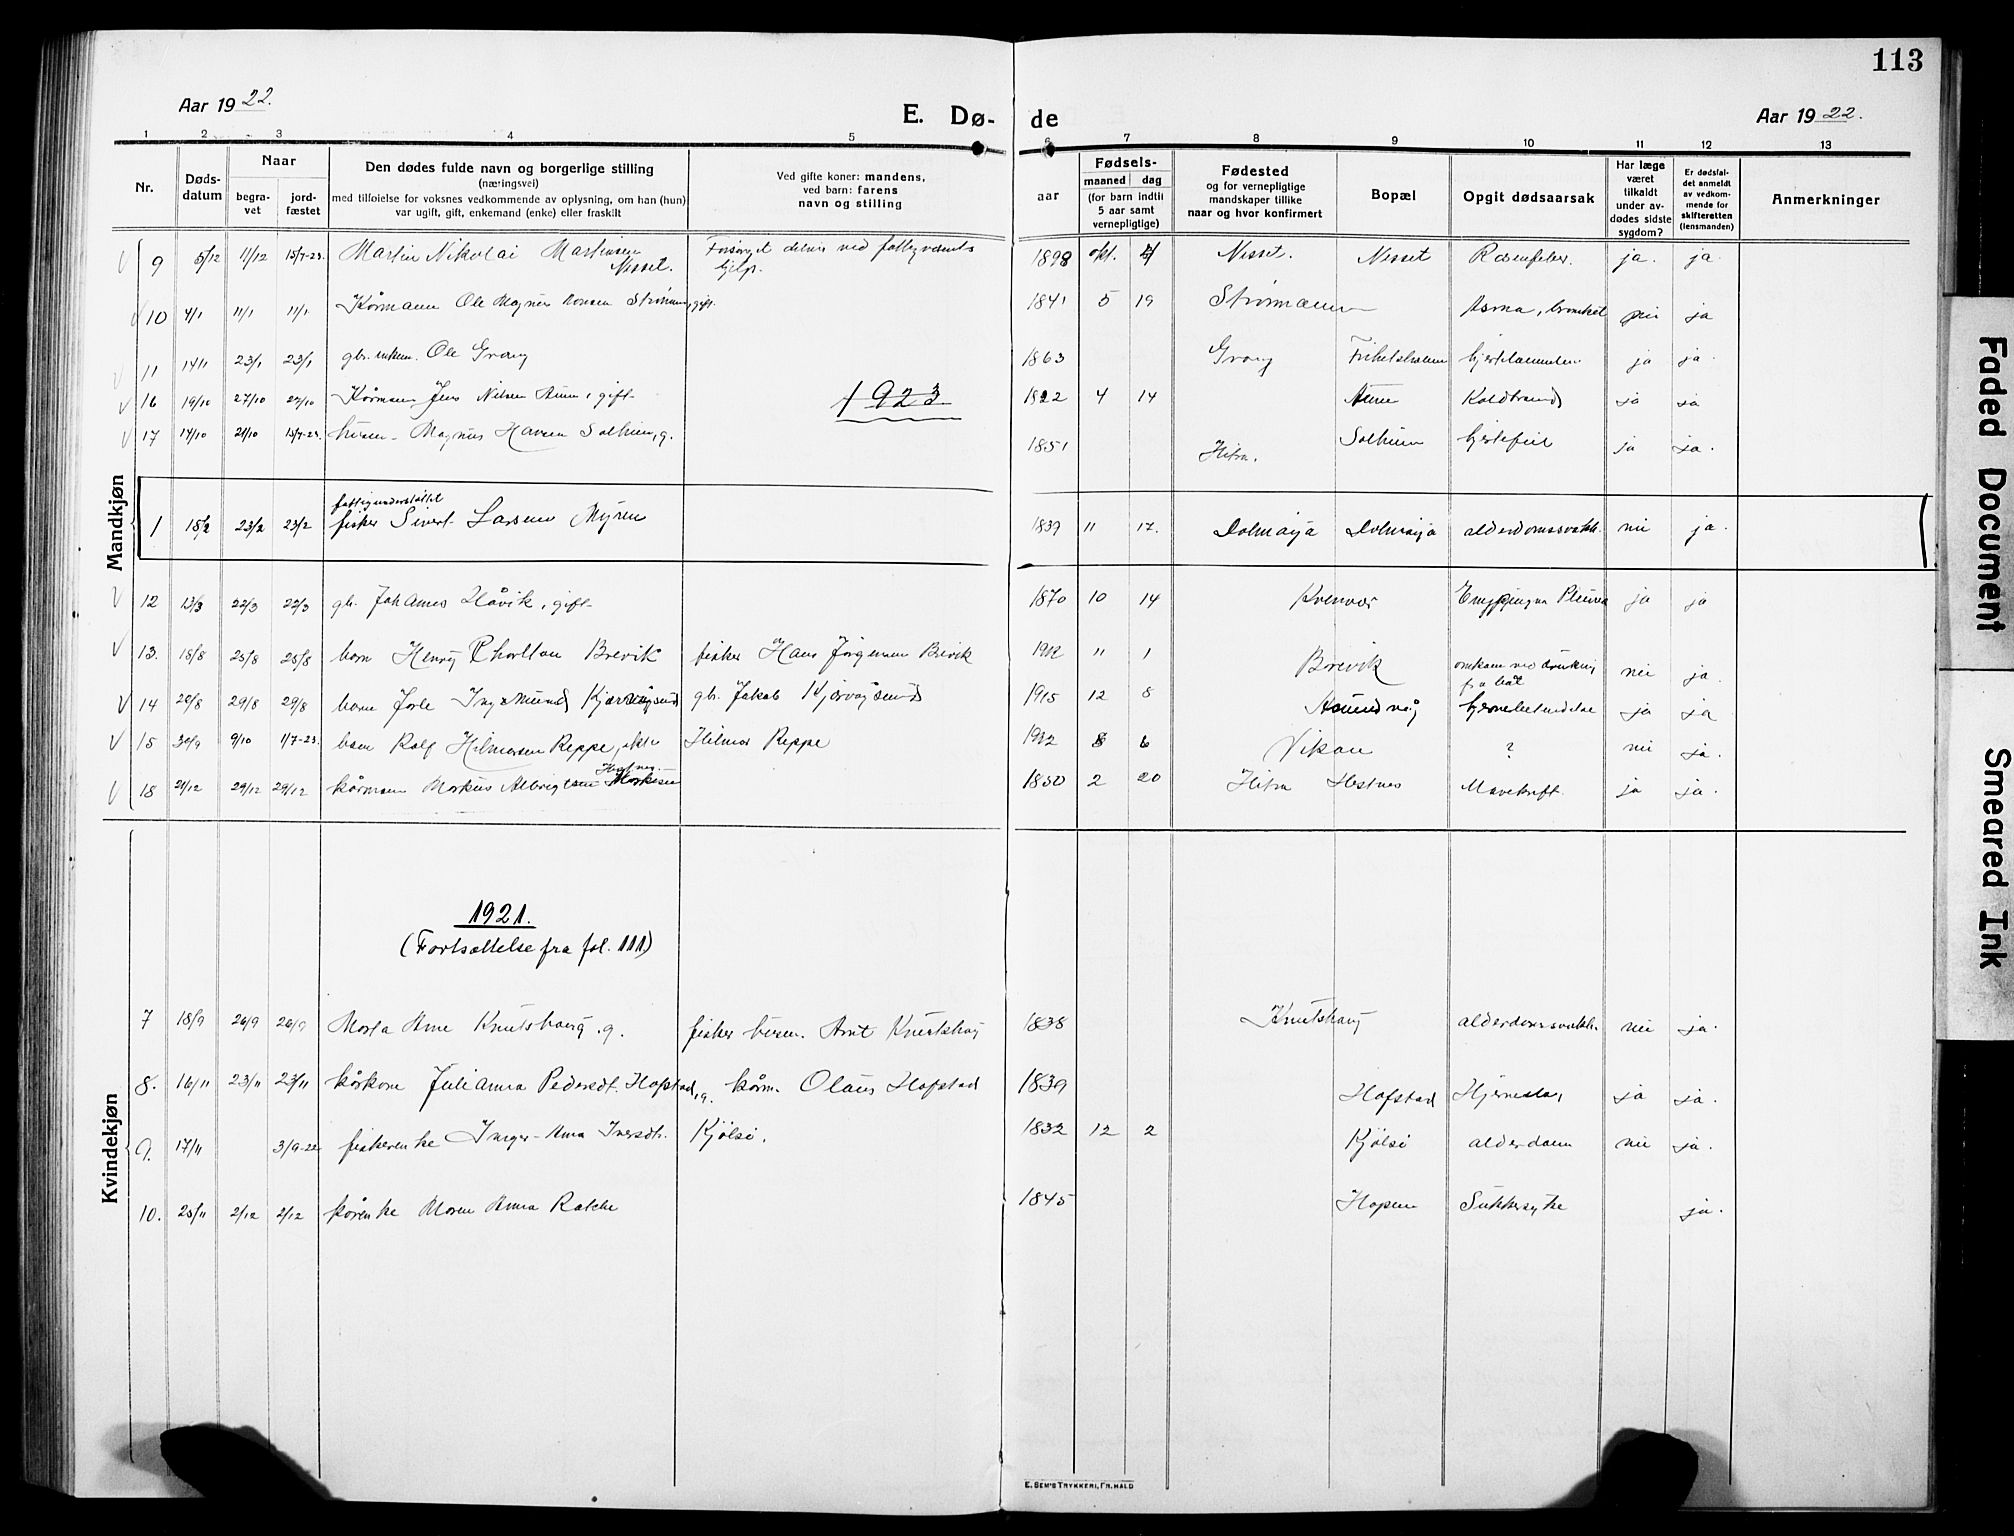 113
Aar 1922.
E. Dø-
de
Aar 1922.
1 2 3 4 5 6 7 8 9 10 11 12 13
Nr.
Døds-
datum
Naar
begra-
vet
jord-
fæstet
Den dødes fulde navn og borgerlige stilling
(næringsvei)
med tilføielse for voksnes vedkommende av oplysning, om han (hun)
var ugift, gift, enkemand (enke) eller fraskilt
Ved gifte koner: mandens,
ved barn: farens
navn og stilling
aar
Fødsels-
maaned dag
(for barn indtil
5 aar samt
vernepligtige)
Fødested
og for vernepligtige
mandskaper tillike
naar og hvor konfirmert
Bopæl
Opgit dødsaarsak
Har læge
været
tilkaldt
under av-
dødes sidste
sygdom?
Er dødsfal-
det anmeldt
av vedkom-
mende for
skifteretten
(lensmanden)
Anmerkninger
Mandkjøn
9 5/12 11/12 15/7-23. Martin Nikolai Martinsen Nesset. Forsørget delvis ved fattigvæsnets hjelp. 1898 okt. Nesset. Nesset ja. ja.
10 4/1 11/1 11/1. Kårmann Ole Magnus gift. 1841 5 19 Asma, bronkit ja
11 14/1 23/1 23/1 gbr. enkem. Ole Grang 1863 Grang ja ja.
16 19/10 27/10 27/10 Kårmann Jens Nilsen Aune, gift. 1822 4 14 Aune Koldbrand ja ja
1923
17 14/10 21/10 15/7-23. husm. Magnus Hansen Solheim, g. 1851 Hitra. Solheim hjertefeil ja ja.
1 18/2 23/2 23/2 fattigunderstøttet fisker Sivert Larsen Myren 1839 11 17. Dolmøya Dolmøya alderdomssvakh. nei ja.
12 13/3 22/3 22/3 gb. Johannes Håvik, gift. 1870 10 14 Kvenvær Pleurea ja ja
13. 18/8 25/8 25/8 barn Henry Thorlton Brevik fisker Hans Jørgensen Brevik 1912 11 1 Brevik omkom ved drukning fra båt nei ja.
14 20/8 29/8 29/8 barn Jorle Ingemund Kjørvågsund gb. Jakob Kjørvågsund 1915 12 8 hjernebetendelse ja ja
15 30/9 9/10 1/7-23. barn Rolf Hilmarsen Reppe, ekte Hilmar Reppe 1912 8 6 Vikan ? nei ja.
18 21/12 29/12 29/12 kårmann Markus Albrigtsen Hestnes. 1850 2 20 Hitra Hestnes Mavekræft. ja ja.
Kvindekjøn
1921.
(Fortsættelse fra fol. 111)
7 18/9 26/9 26/9 Marta Ane Knutshaug. g. fisker husm. Arnt Knutshaug 1838 Knutshaug alderdomssvakh. nei ja.
8. 16/11 23/11 23/11 kårkone Julianna Pedersdt. Hofstad, g. kårm. Olaus Hofstad 1839 Hofstad Hjerneslag ja ja.
9. 17/11 3/9-22 fiskerenke Inger-Ana Iversdt. Kjølsø. 1832 12 2 Kjølsø alderdom nei ja.
10. 25/11 2/12 2/12 kårenke Maren Anna 1845 Hopen Sukkersyke ja.
E. SEM'S TRYKKERI, FR.HALD
Faded Document
Smeared Ink